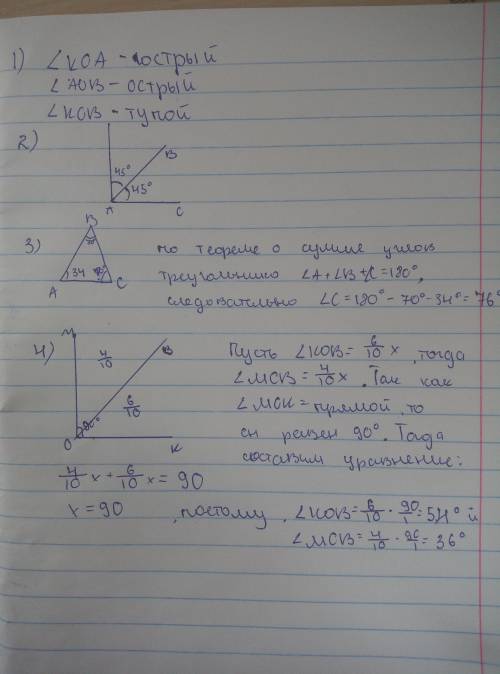 1) ∠KOA - острый
∠AOB - острый
∠KOB - тупой
2)
B
45°
45°
A C
3) B
34
A C
по теореме о сумме углов
треугольника ∠A+∠B+∠C=180°,
следовательно ∠C=180°-70°-34°=76°
4) M
4/10
B
6/10
90°
O K
Пусть ∠KOB=6/10 x, тогда
∠MOB=4/10 x. Так как
∠MOK=прямой, то
он равен 90°. Тогда
составим уравнение:
4/10 x + 6/10 x = 90
x = 90, поэтому, ∠KOB=6/10 · 90/1=54° и
∠MOB=4/10 · 90/1=36°